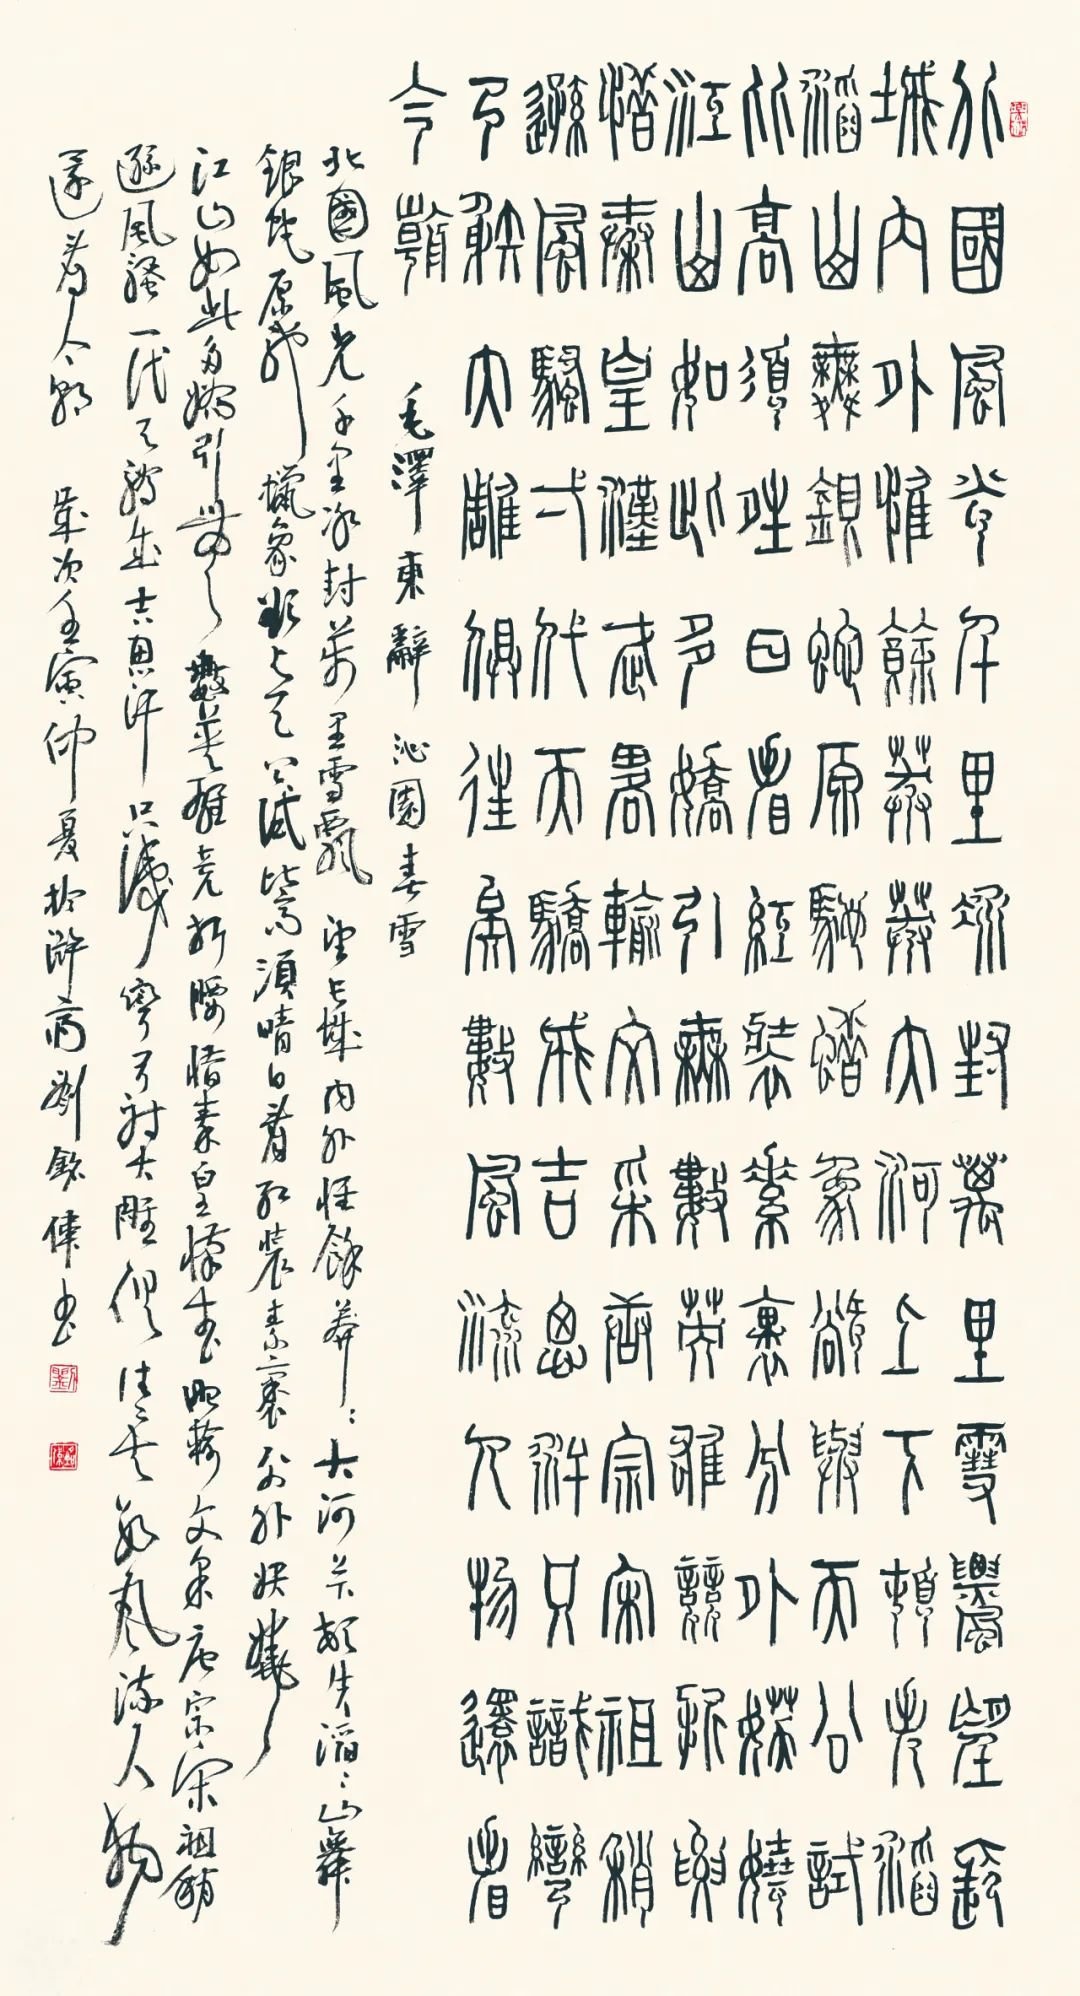 北國風光千里冰封萬里雪飄望長
城內外惟餘莽莽大河上下頓失滔
滔山舞銀蛇原馳蠟象欲與天公試
比高須晴日看紅裝素裹分外妖嬈
江山如此多嬌引無數英雄競折腰
惜秦皇漢武略輸文采唐宗宋祖稍
遜風騷一代天驕成吉思汗只識彎
弓射大雕俱往矣數風流人物還看
今朝
毛澤東辭沁園春雪
北國風光千里冰封萬里雪飄望長城內外惟餘莽〻大河上下頓失滔〻山舞
銀蛇原馳蠟象欲與天公試比高須晴日看紅裝素裹分外妖嬈
江山如此多嬌引無數英雄競折腰惜秦皇漢武略輸文采唐宗宋祖稍
遜風騷一代天驕成吉思汗只識彎弓射大雕俱往矣數風流人物
還看今朝 歲次壬寅仲夏於滸 劉銘偉書